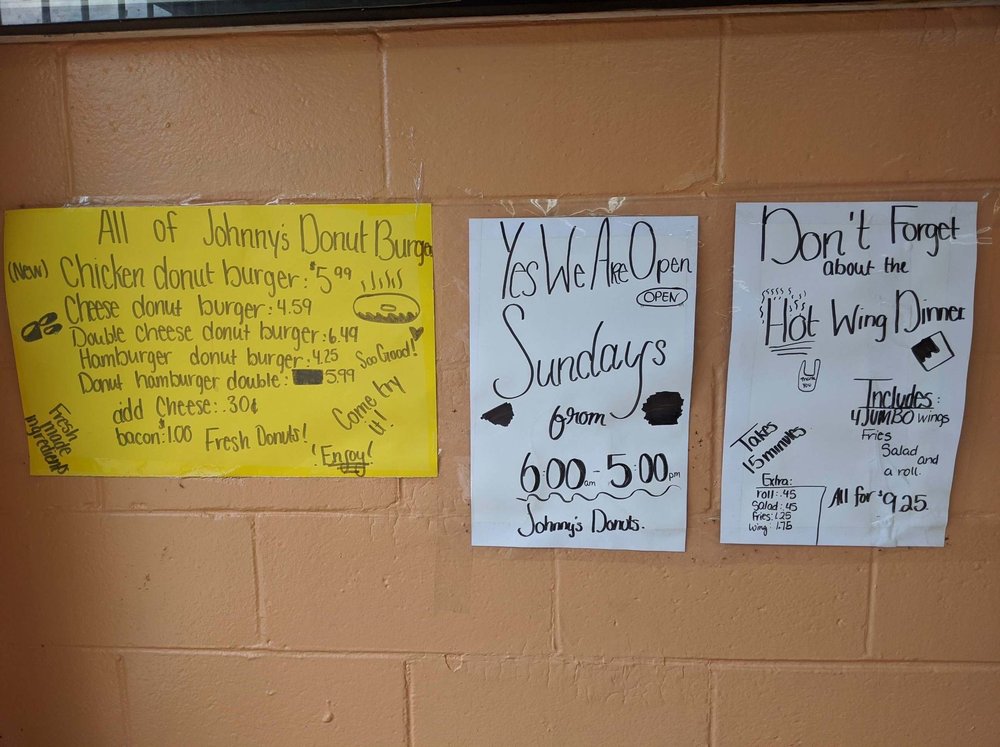 All of Johnny's Donut Burger
(New) Chicken donut burger: $5.99
Cheese donut burger: 4.59
Double cheese donut burger: 6.49
Hamburger donut burger: 4.25
Donut hamburger double: 5.99
add Cheese: .30¢
bacon: $1.00
Fresh Donuts!
Soo Good!
Come try
it!
"Enjoy"
Fresh
made
ingredients
Yes We Are Open
OPEN
Sundays
from
6:00am - 5:00pm
Johnny's Donuts.
Don't Forget
about the
Hot Wing Dinner
thank
you
Takes
15 minutes
Includes:
4 JUMBO wings
Fries
Salad
and
a roll.
All for $9.25
Extra:
roll: .45
Salad: .45
Fries: 1.25
Wing: 1.75